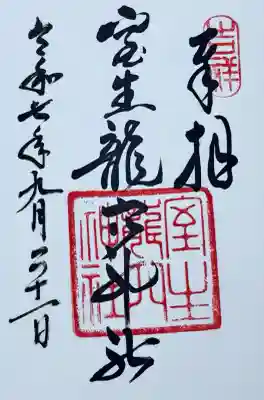 吉祥
奉拝
室生龍穴神社
室生龍穴神社
令和七年九月二十一日